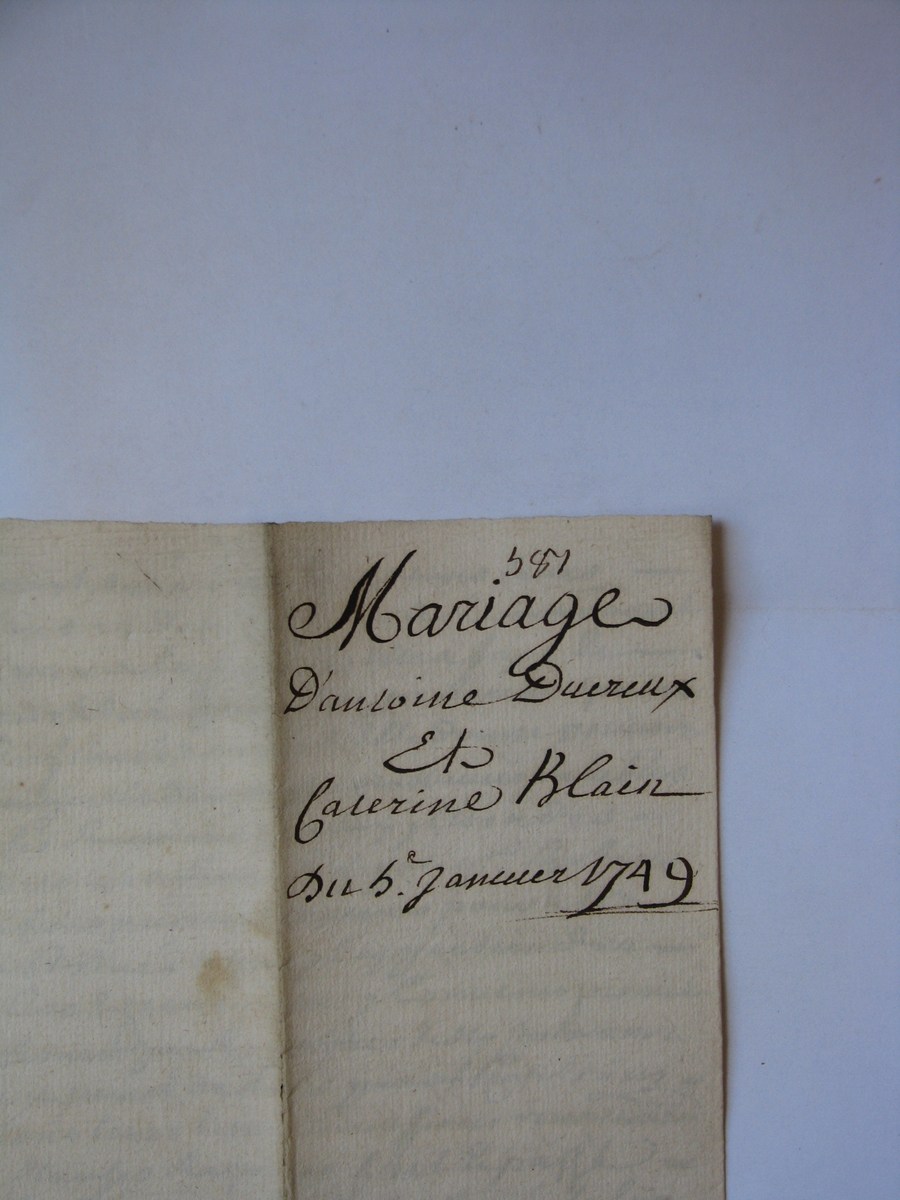 581
Mariage
D'antoine Ducreux
Et
Caterine Blain
Du 5.e Janvier 1749